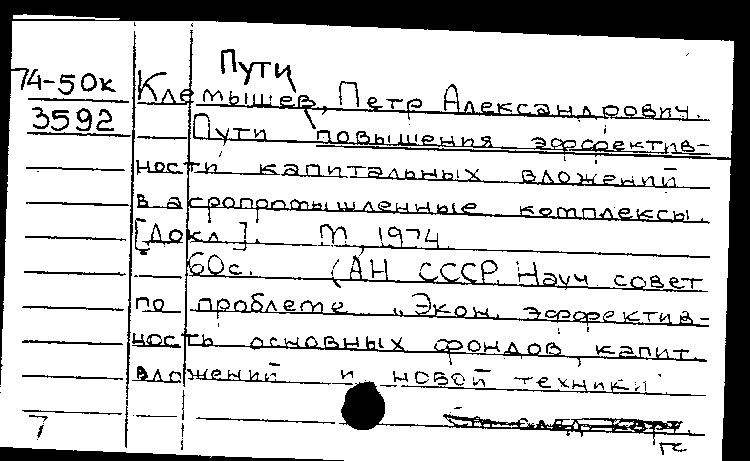 Пути
74-50к Клемышев, Петр Александрович.
3592 Пути повышения эффектив-
ности капитальных вложений
в агропромышленные комплексы.
[Докл.]. М., 1974.
60с. (АН СССР. Науч совет
по проблеме „Экон. эффектив-
ность основных фондов, капит.
вложений и новой техники"
См след карт.
7 гс